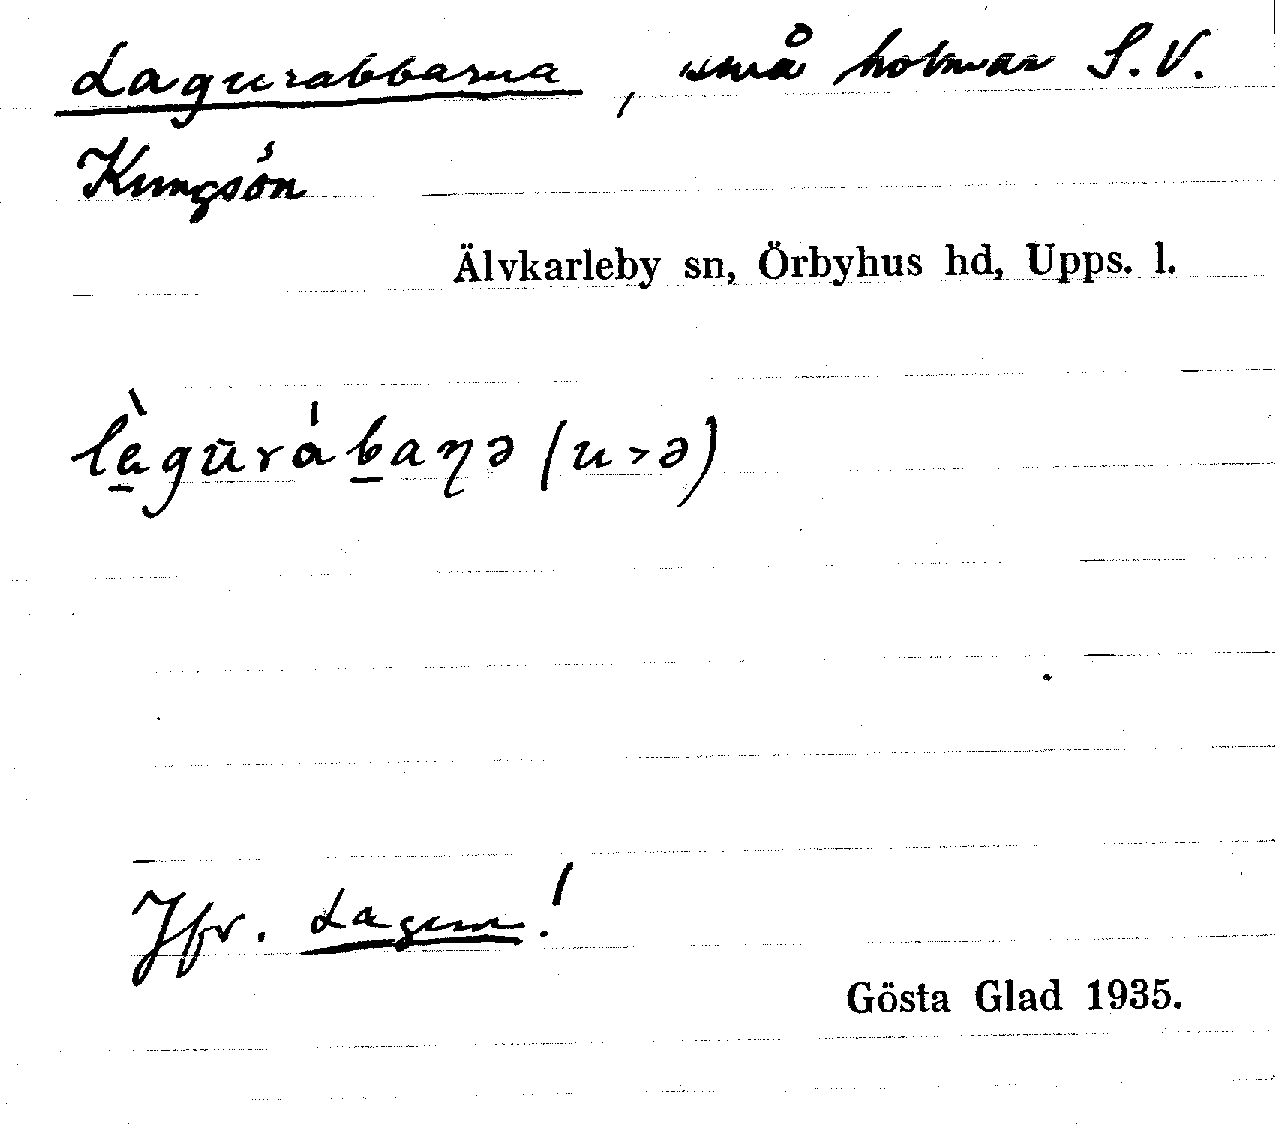 Lagurabbarna, små holmar S.V.
Kungsön
Älvkarleby sn, Örbyhus hd, Upps. l.
làgūrábaŋə (u>ə)
Jfr. Lagun!
Gösta Glad 1935.